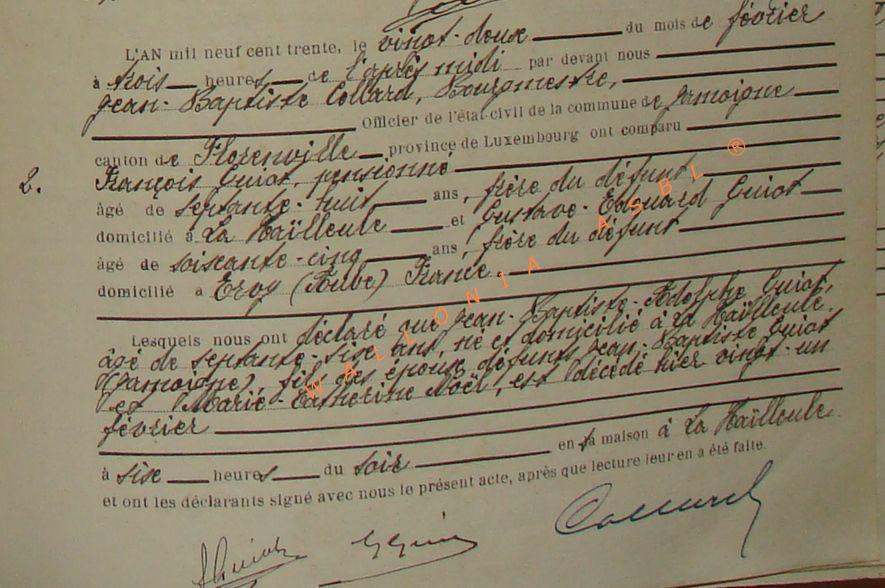 L'AN mil neuf cent trente, le vingt-deux du mois de février
à trois heures de l'après midi par devant nous
Jean-Baptiste Collard, Bourgmestre,
Officier de l'état-civil de la commune de Jamoigne
canton de Florenville province de Luxembourg ont comparu
2. François Guiot, pensionné
âgé de septante-huit ans, frère du défunt
domicilié à La Haïlleule et Gustave-Edouard Guiot
âgé de soixante-cinq ans, frère du défunt
domicilié à Ervy (Aube) France
Lesquels nous ont déclaré que Jean-Baptiste-Adolphe Guiot,
âgé de septante-six ans, né et domicilié à La Haïlleule
(Jamoigne), fils des époux défunts Jean-Baptiste Guiot
et Marie-Catherine Noël, est décédé hier vingt-un
février
à six heures du soir en sa maison à La Haïlleule
et ont les déclarants signé avec nous le présent acte, après que lecture leur en a été faite.
FGuiot GGuiot Collard
WALLONIA ASBL ®